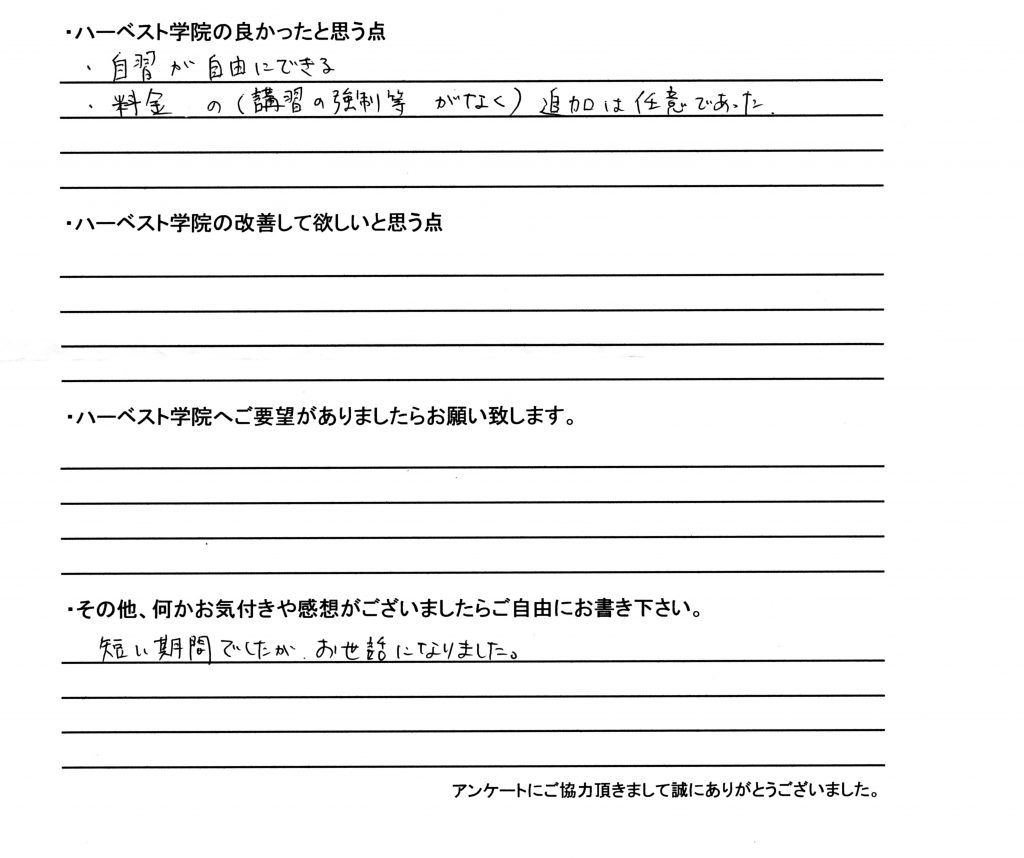 ・ハーベスト学院の良かったと思う点
・自習が自由にできる
・料金 の(講習の強制等 がなく)追加は任意であった.
・ハーベスト学院の改善して欲しいと思う点
・ハーベスト学院へご要望がありましたらお願い致します。
・その他、何かお気付きや感想がございましたらご自由にお書き下さい。
短い期間でしたが、お世話になりました。
アンケートにご協力頂きまして誠にありがとうございました。